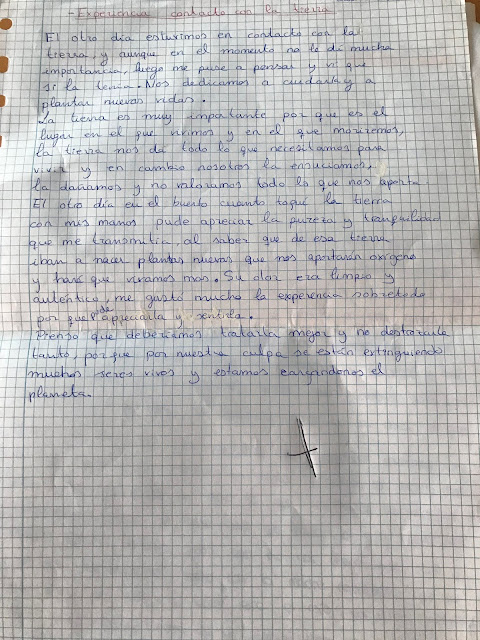 - Experiencia contacto con la tierra
El otro día estuvimos en contacto con la
tierra, y aunque en el momento no le di mucha
importancia, luego me puse a pensar y vi que
si la tenía. Nos dedicamos a cuidarla y a
plantar nuevas vidas.
La tierra es muy importante por que es el
lugar en el que vivimos y en el que moriremos,
la tierra nos da todo lo que necesitamos para
vivir y en cambio nosotros la ensuciamos,
la dañamos y no valoramos todo lo que nos aporta
El otro día en el huerto cuando toqué la tierra
con mis manos pude apreciar la pureza y tranquilidad
que me transmitía, al saber que de esa tierra
iban a nacer plantas nuevas que nos aportarán oxígeno
y hará que vivamos mas. Su olor era limpio y
auténtico, me gustó mucho la experencia sobretodo
por que pude apreciarla y sentirla.
Pienso que deberíamos tratarla mejor y no destrozarla
tanto, por que por nuestra culpa se están extinguiendo
muchos seres vivos y estamos cargandonos el
planeta.